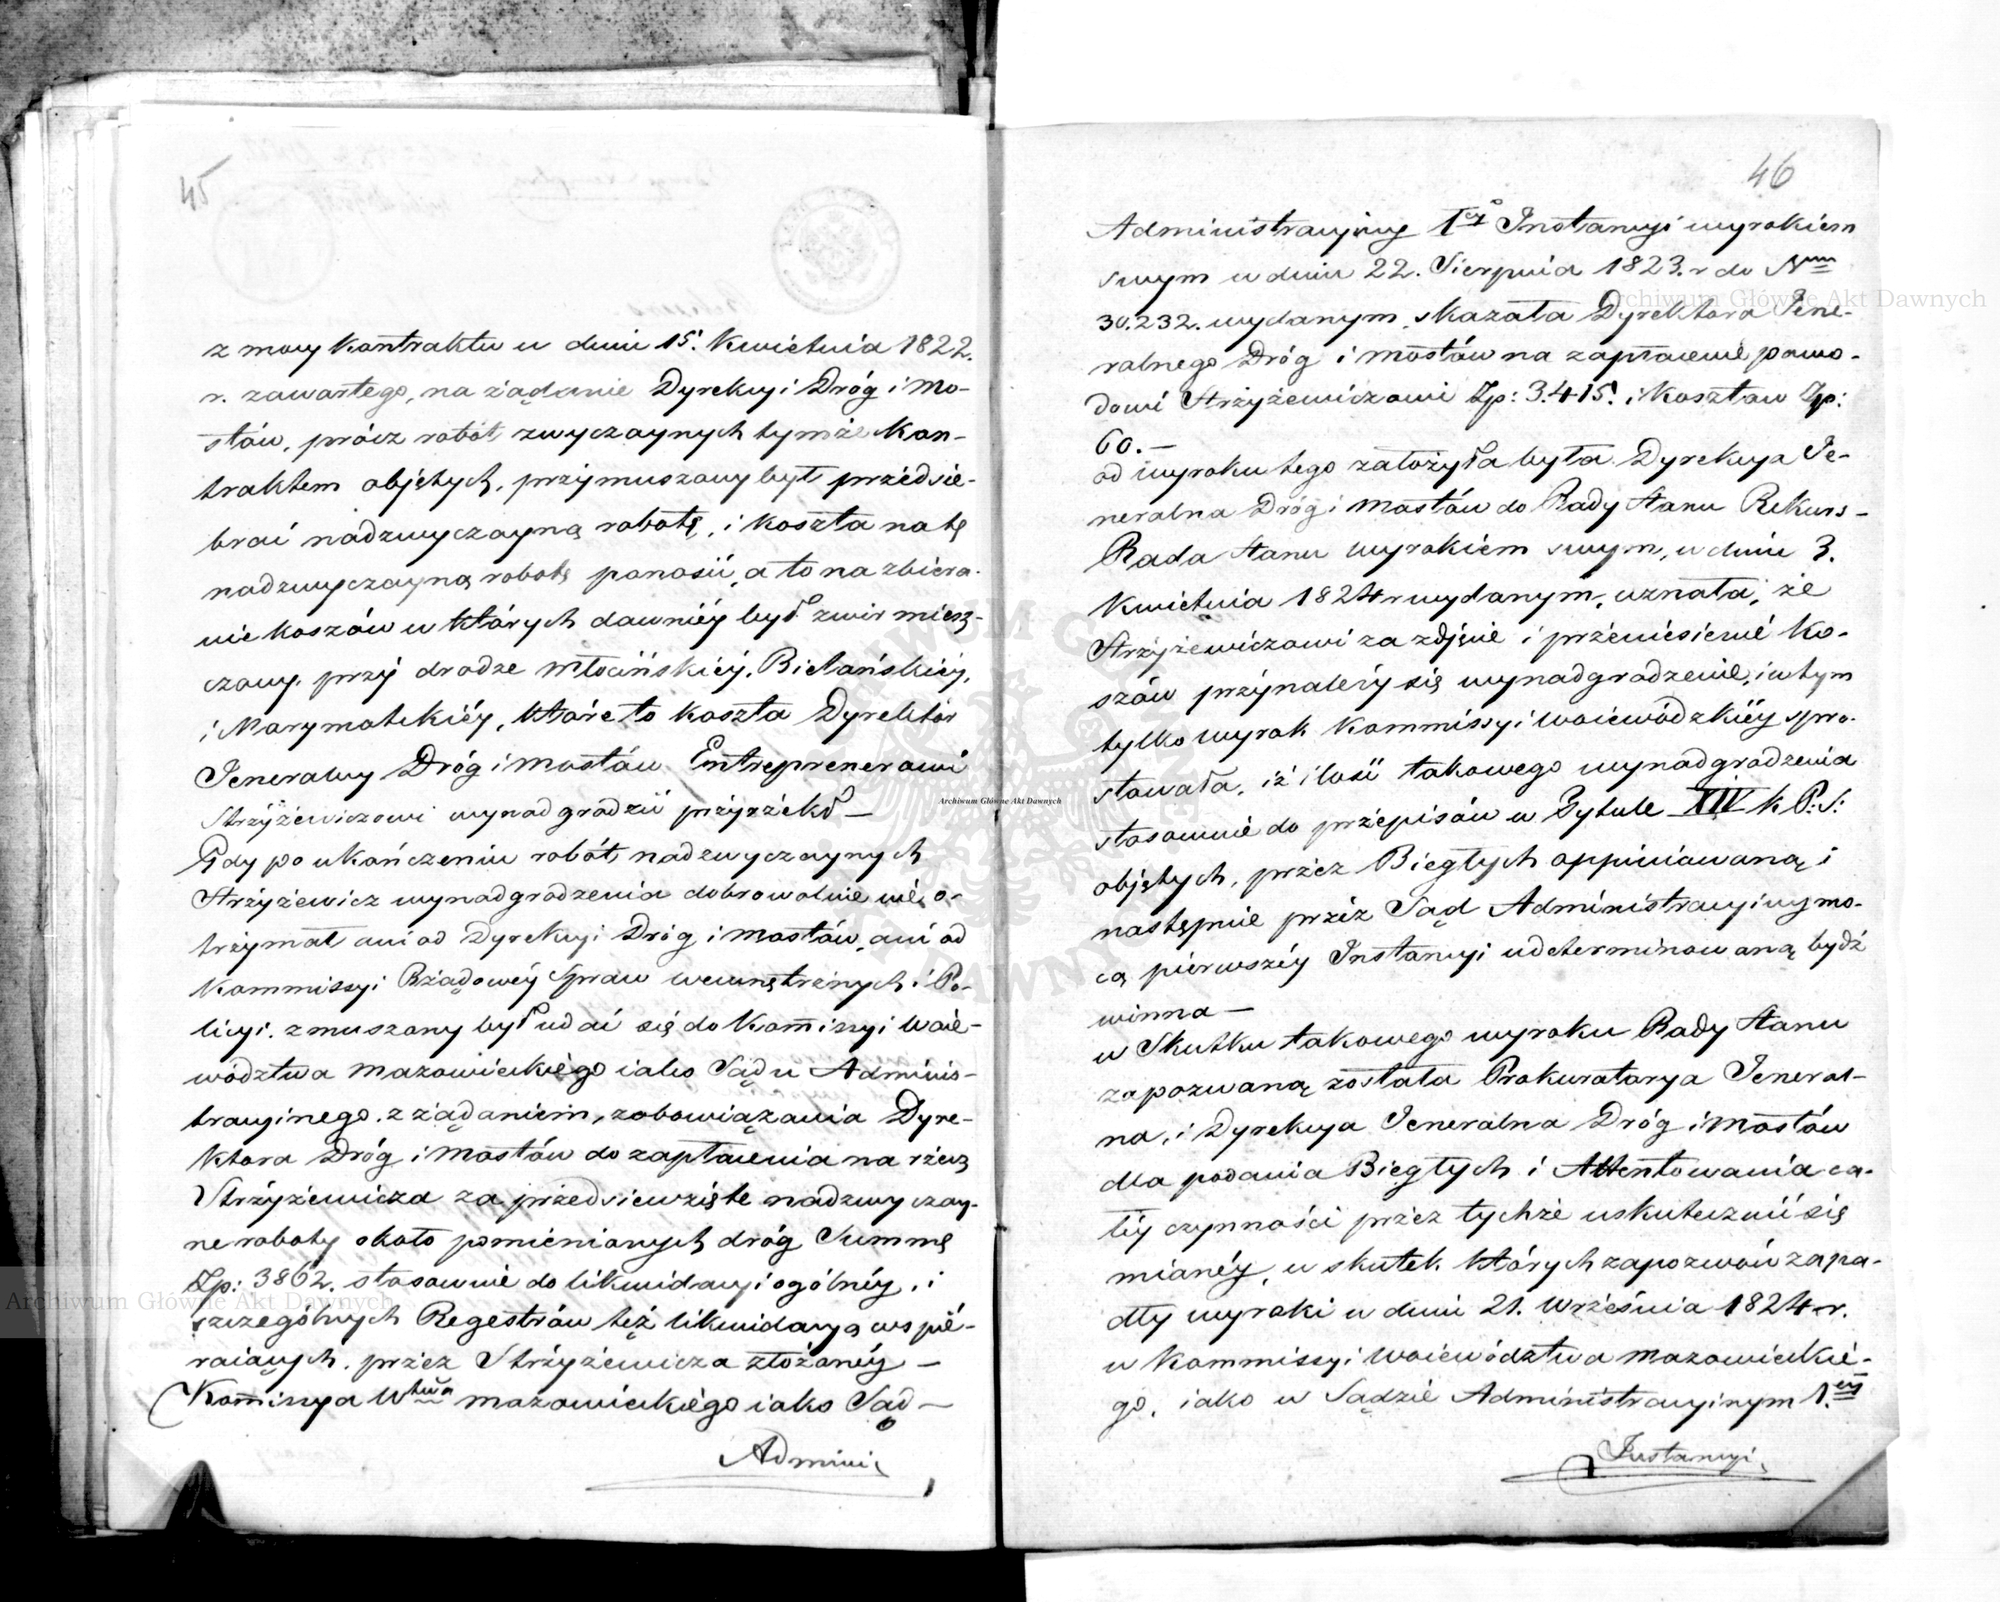 45
z mocy kontraktu w dniu 15. Kwietnia 1822.
r. zawartego, na żądanie Dyrekcyi Dróg i Mo-
stów, prócz robót zwyczaynych tymże Kon-
traktem objętych, przymuszony był przedsie-
brać nadzwyczayną robotę, i koszta na tę
nadzwyczayną robotę ponosić, a to na zbiera-
nie koszów w których dawniéy był zwir miesz-
czony, przy drodze Młocińskiéy, Bielańskiéy,
i Marymontskiéy, które to koszta Dyrektór
Jeneralny Dróg i mostów Entreprenerowi
Strzyżewiczowi wynadgrodzić przyrzekł —
Gdy po ukończeniu robót nadzwyczaynych
Strzyżewicz wynadgrodzenia dobrowolnie nie o-
trzymał ani od Dyrekcyi Dróg i mostów, ani od
Kommissyi Rządowéy Spraw wewnętrznych i Po-
licyi, zmuszony był udać się do Kom̄issyi Woie-
wództwa mazowieckiégo iako Sądu Adminis-
tracyinego, z żądaniem, zobowiązania Dyre-
ktora Dróg i Mostów do zapłacenia na rzecz
Strzyżewicza za przedsiewzięte nadzwyczay-
ne roboty około pomienionych dróg Summę
Zp: 3862. stosownie do likwidacyi ogólnéy, i
szczególnych Regestrów téż likwidacyą wspié-
raiących, przez Strzyżewicza złożonéy —
Kom̄issya Wtwa mazowieckiégo iako Sąd —
Admini
46
Administracyiny 1éy Instancyi wyrokiem
swym w dniu 22. Sierpnia 1823. r do Nru
30.232. wydanym, skazała Dyrektora Jene-
ralnego Dróg i mostów na zapłacenie powo-
dowi Strzyżewiczowi Zp: 3.415. i Kosztów Zp:
60. —
od wyroku tego założyła była Dyrekcya Je-
neralna Dróg i Mostów do Rady Stanu Rekurs —
Rada Stanu wyrokiem swym, w dniu 3.
Kwietnia 1824 r wydanym, uznała, że
Strzyżewiczowi za zdjęcie i przeniesienié Ko-
szów przynależy się wynadgrodzenie, i w tym
tylko wyrok Kommissyi Woiewódzkiéy spro-
stowała, iż ilość takowego wynadgrodzenia
stosownie do przepisów w Tytule XIV k. P: S:
objętych, przez Biegłych oppiniowaną i
następnie przéz Sąd Administracyiny mo-
cą pierwszéy Instancyi udeterminowaną bydź
winna —
w Skutku takowego wyroku Rady Stanu
zapozwaną została Prokuratorya Jeneral-
na, i Dyrekcya Jeneralna Dróg i Mostów
dla podania Biegłych i Attentowania ca-
łéy czynności przez tychże uskutecznić się
mianéy, w skutek których zapozwów zapa-
dły wyroki w dniu 21. Września 1824 r.
w Kommissyi Woiewództwa mazowieckié-
go, iako w Sądzie Administracyinym 1éy
Instancyi
Archiwum Główne Akt Dawnych
Archiwum Główne Akt Dawnych
Archiwum Główne Akt Dawnych
ARCHIWUM GŁÓWNE AKT DAWNYCH